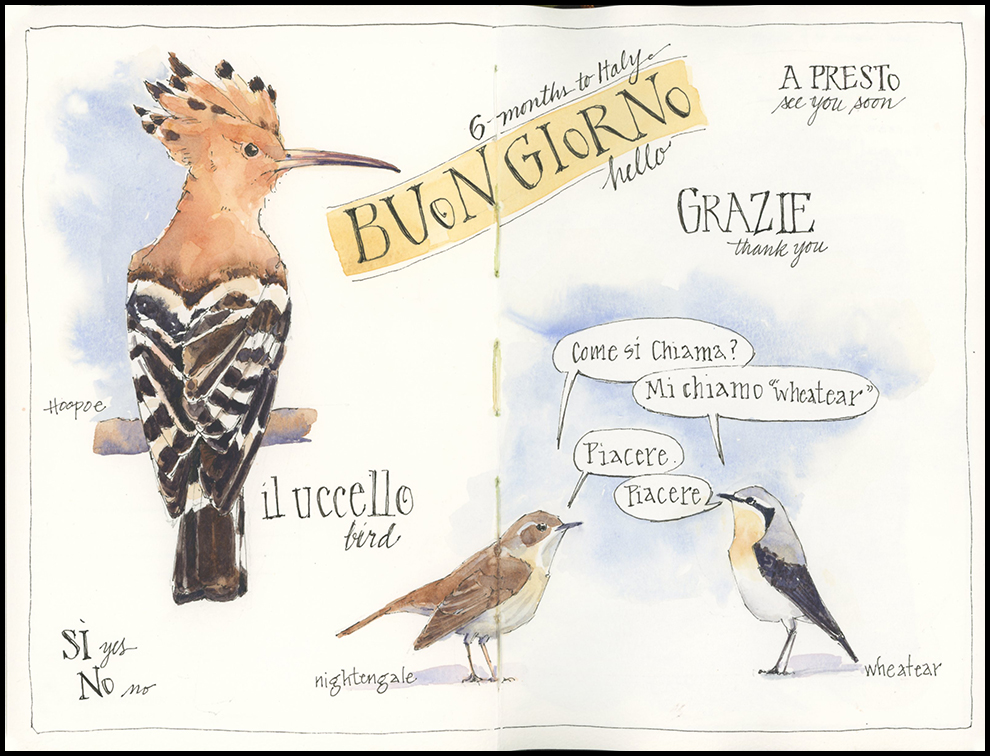 6-months to Italy
BUON GIORNO
hello
A PRESTO
see you soon
GRAZIE
thank you
Hoopoe
il uccello
bird
Come si Chiama?
Mi chiamo "wheatear"
Piacere.
Piacere
SÌ yes
NO no
nightengale
wheatear